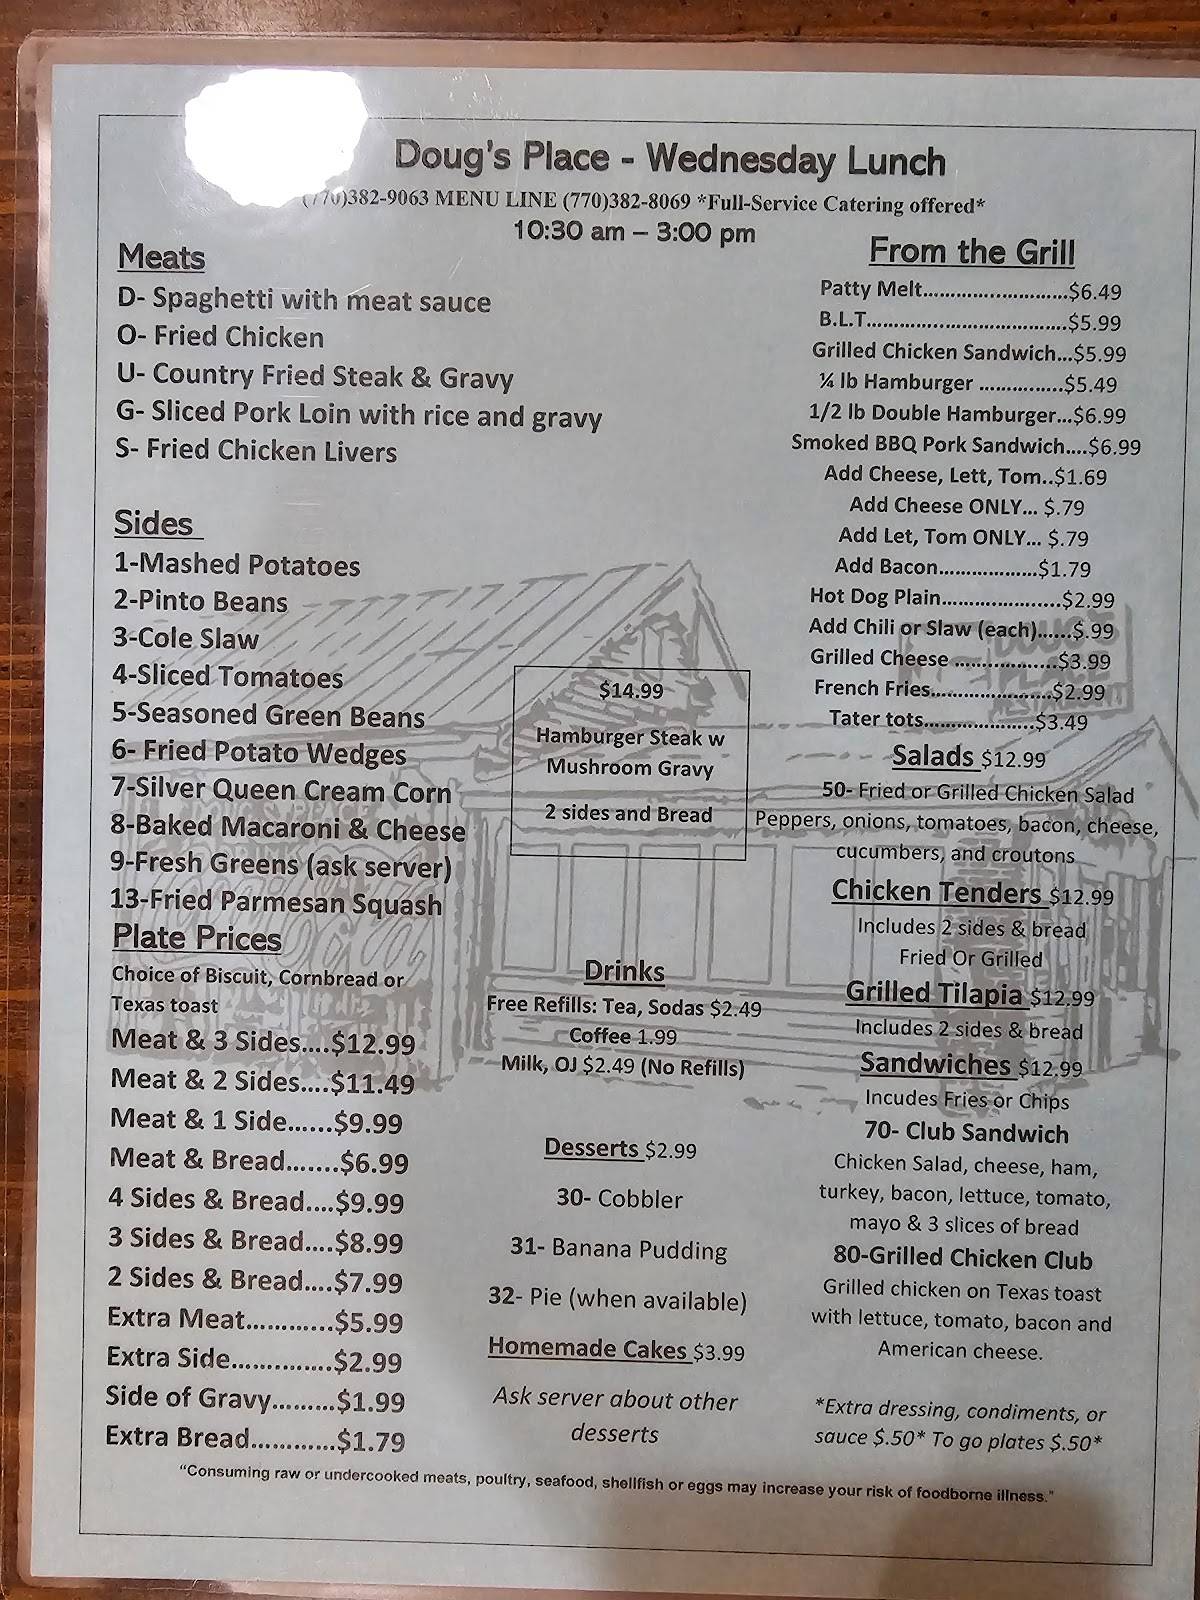 Doug's Place - Wednesday Lunch
(770)382-9063 MENU LINE (770)382-8069 *Full-Service Catering offered*
10:30 am – 3:00 pm
Meats
D- Spaghetti with meat sauce
O- Fried Chicken
U- Country Fried Steak & Gravy
G- Sliced Pork Loin with rice and gravy
S- Fried Chicken Livers
Sides
1-Mashed Potatoes
2-Pinto Beans
3-Cole Slaw
4-Sliced Tomatoes
5-Seasoned Green Beans
6- Fried Potato Wedges
7-Silver Queen Cream Corn
8-Baked Macaroni & Cheese
9-Fresh Greens (ask server)
13-Fried Parmesan Squash
Plate Prices
Choice of Biscuit, Cornbread or
Texas toast
Meat & 3 Sides....$12.99
Meat & 2 Sides....$11.49
Meat & 1 Side......$9.99
Meat & Bread.......$6.99
4 Sides & Bread....$9.99
3 Sides & Bread....$8.99
2 Sides & Bread....$7.99
Extra Meat............$5.99
Extra Side..............$2.99
Side of Gravy.........$1.99
Extra Bread............$1.79
$14.99
Hamburger Steak w
Mushroom Gravy
2 sides and Bread
Drinks
Free Refills: Tea, Sodas $2.49
Coffee 1.99
Milk, OJ $2.49 (No Refills)
Desserts $2.99
30- Cobbler
31- Banana Pudding
32- Pie (when available)
Homemade Cakes $3.99
Ask server about other
desserts
From the Grill
Patty Melt.........................$6.49
B.L.T...................................$5.99
Grilled Chicken Sandwich...$5.99
¼ lb Hamburger ...............$5.49
1/2 lb Double Hamburger...$6.99
Smoked BBQ Pork Sandwich....$6.99
Add Cheese, Lett, Tom..$1.69
Add Cheese ONLY... $.79
Add Let, Tom ONLY... $.79
Add Bacon..................$1.79
Hot Dog Plain.....................$2.99
Add Chili or Slaw (each)......$.99
Grilled Cheese ..................$3.99
French Fries......................$2.99
Tater tots....................$3.49
Salads $12.99
50- Fried or Grilled Chicken Salad
Peppers, onions, tomatoes, bacon, cheese,
cucumbers, and croutons
Chicken Tenders $12.99
Includes 2 sides & bread
Fried Or Grilled
Grilled Tilapia $12.99
Includes 2 sides & bread
Sandwiches $12.99
Incudes Fries or Chips
70- Club Sandwich
Chicken Salad, cheese, ham,
turkey, bacon, lettuce, tomato,
mayo & 3 slices of bread
80-Grilled Chicken Club
Grilled chicken on Texas toast
with lettuce, tomato, bacon and
American cheese.
*Extra dressing, condiments, or
sauce $.50* To go plates $.50*
"Consuming raw or undercooked meats, poultry, seafood, shellfish or eggs may increase your risk of foodborne illness."
DOUG'S
PLACE
RESTAURANT